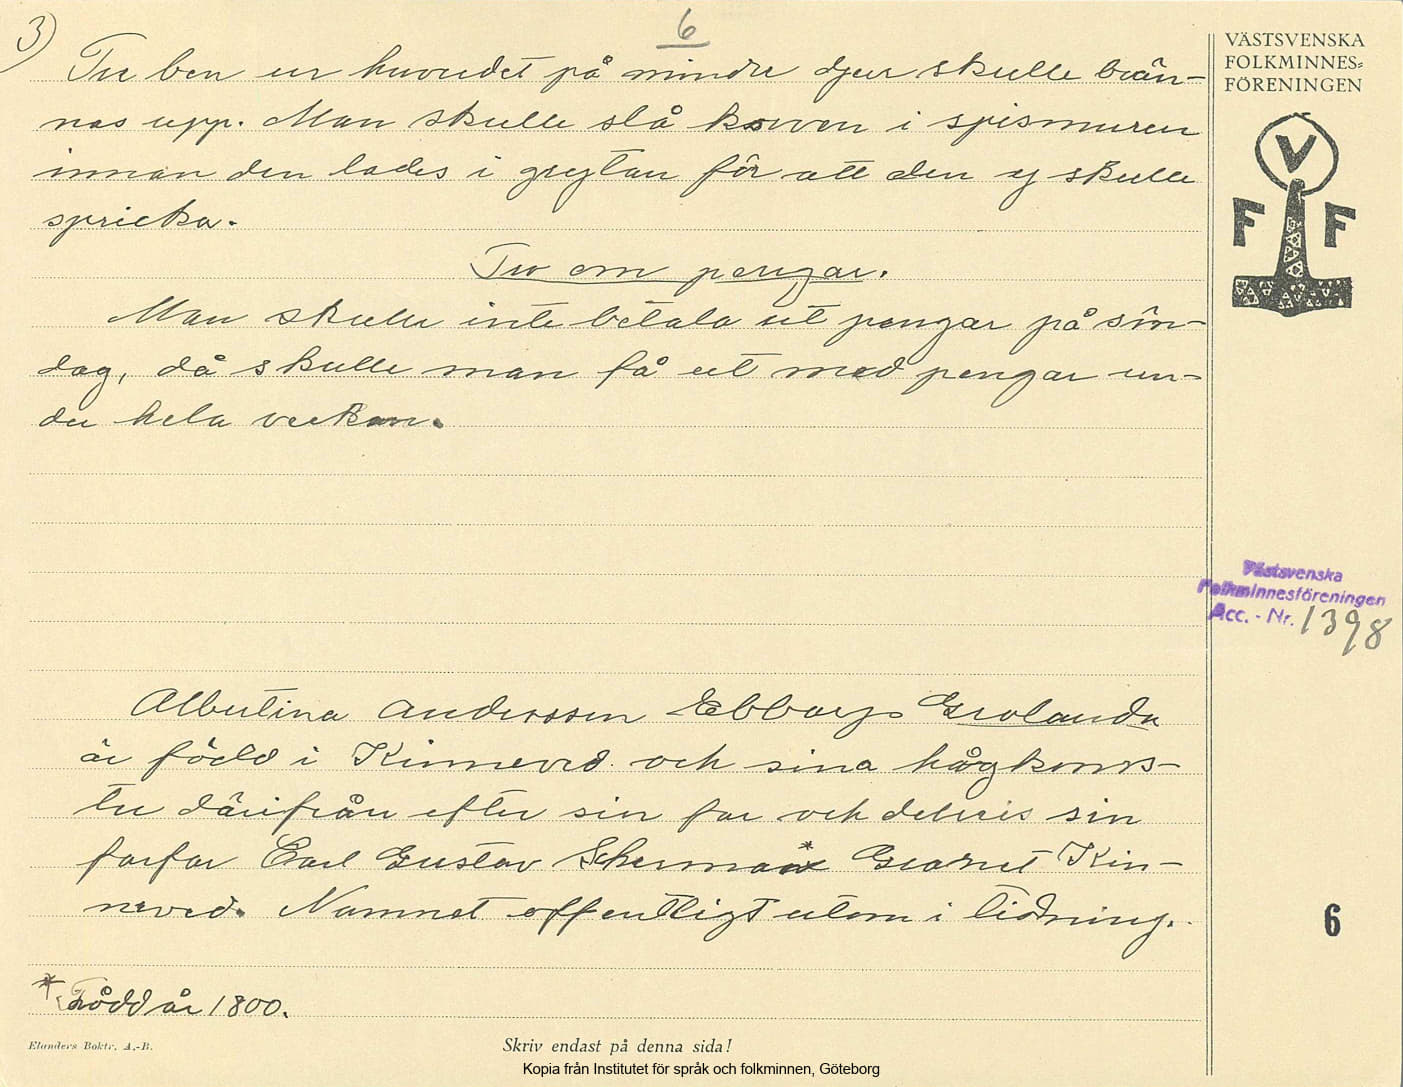 3)
6
Tre ben ur huvudet på mindre djur skulle brän-
nas upp. Man skulle slå korven i spismuren
innan den lades i grytan för att den ej skulle
spricka.
Tro om pengar.
Man skulle inte betala ut pengar på sön-
dag, då skulle man få ut med pengar un-
der hela veckan.
Albertina Andersson Ebbarp Grolanda
är född i Kinneved och sina hågkoms-
ter därifrån efter sin far och delvis sin
farfar Carl Gustav Scherman*
Kin-
neved. Namnet offentligt utom i tidning.
* Född år 1800.
Elanders Boktr. A.-B.
Skriv endast på denna sida!
Kopia från Institutet för språk och folkminnen, Göteborg
VÄSTSVENSKA
FOLKMINNES=
FÖRENINGEN
V
F F
Västsvenska
Folkminnesföreningen
Acc. - Nr. 1398
6